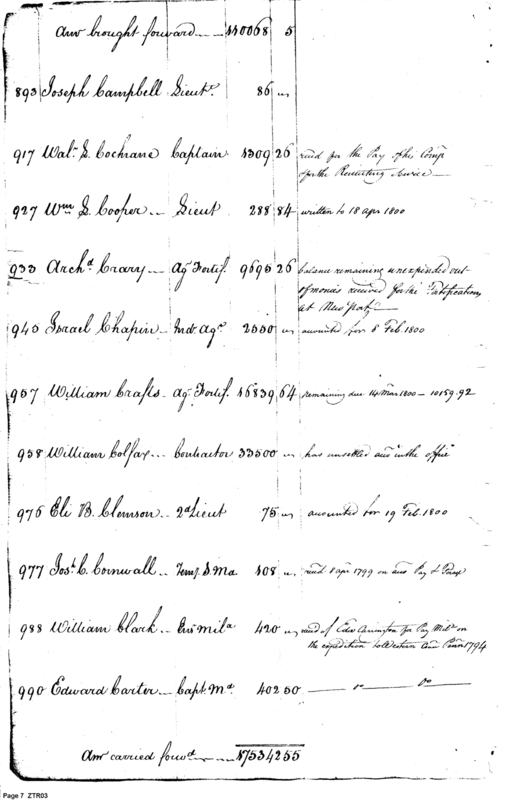 Amt brought forward 110068 5
893 Joseph Campbell Lieut. 86 "
917 Walr. S. Cochrane Captain 1309 26 recd for the Pay of his Compy
for the Recruiting Service
927 Wm S. Cooper Lieut 288 84 written to 18 apr 1800
933 Archd Crary Agt Fortif. 9695 26 balance remaining unexpended out
of monies received for the Fortifications
at New Port
945 Israel Chapin Indn Agt 2500 " accounted for 8 Feb. 1800
957 William Crafts Agt Fortif. 16839 64 remaining due 14 Mar 1800 - 10159.92
958 William Colfax Contractor 33500 " has unsettled accts in the office
976 Eli B. Clemson 2d Lieut 75 " accounted for 19 Feb. 1800
977 Josh. C. Cornwall Temy S. Ma 108 " recd 8 apr 1799 on acct Pay &
988 William Clark Ens Mila 420 " recd of Edwd Carrington for Pay Mila on
the expedition to Western 1794
990 Edward Carter Capt. Ma 402 50 do do
Amt carried forwd 175342 55
Page 7 ZTR03